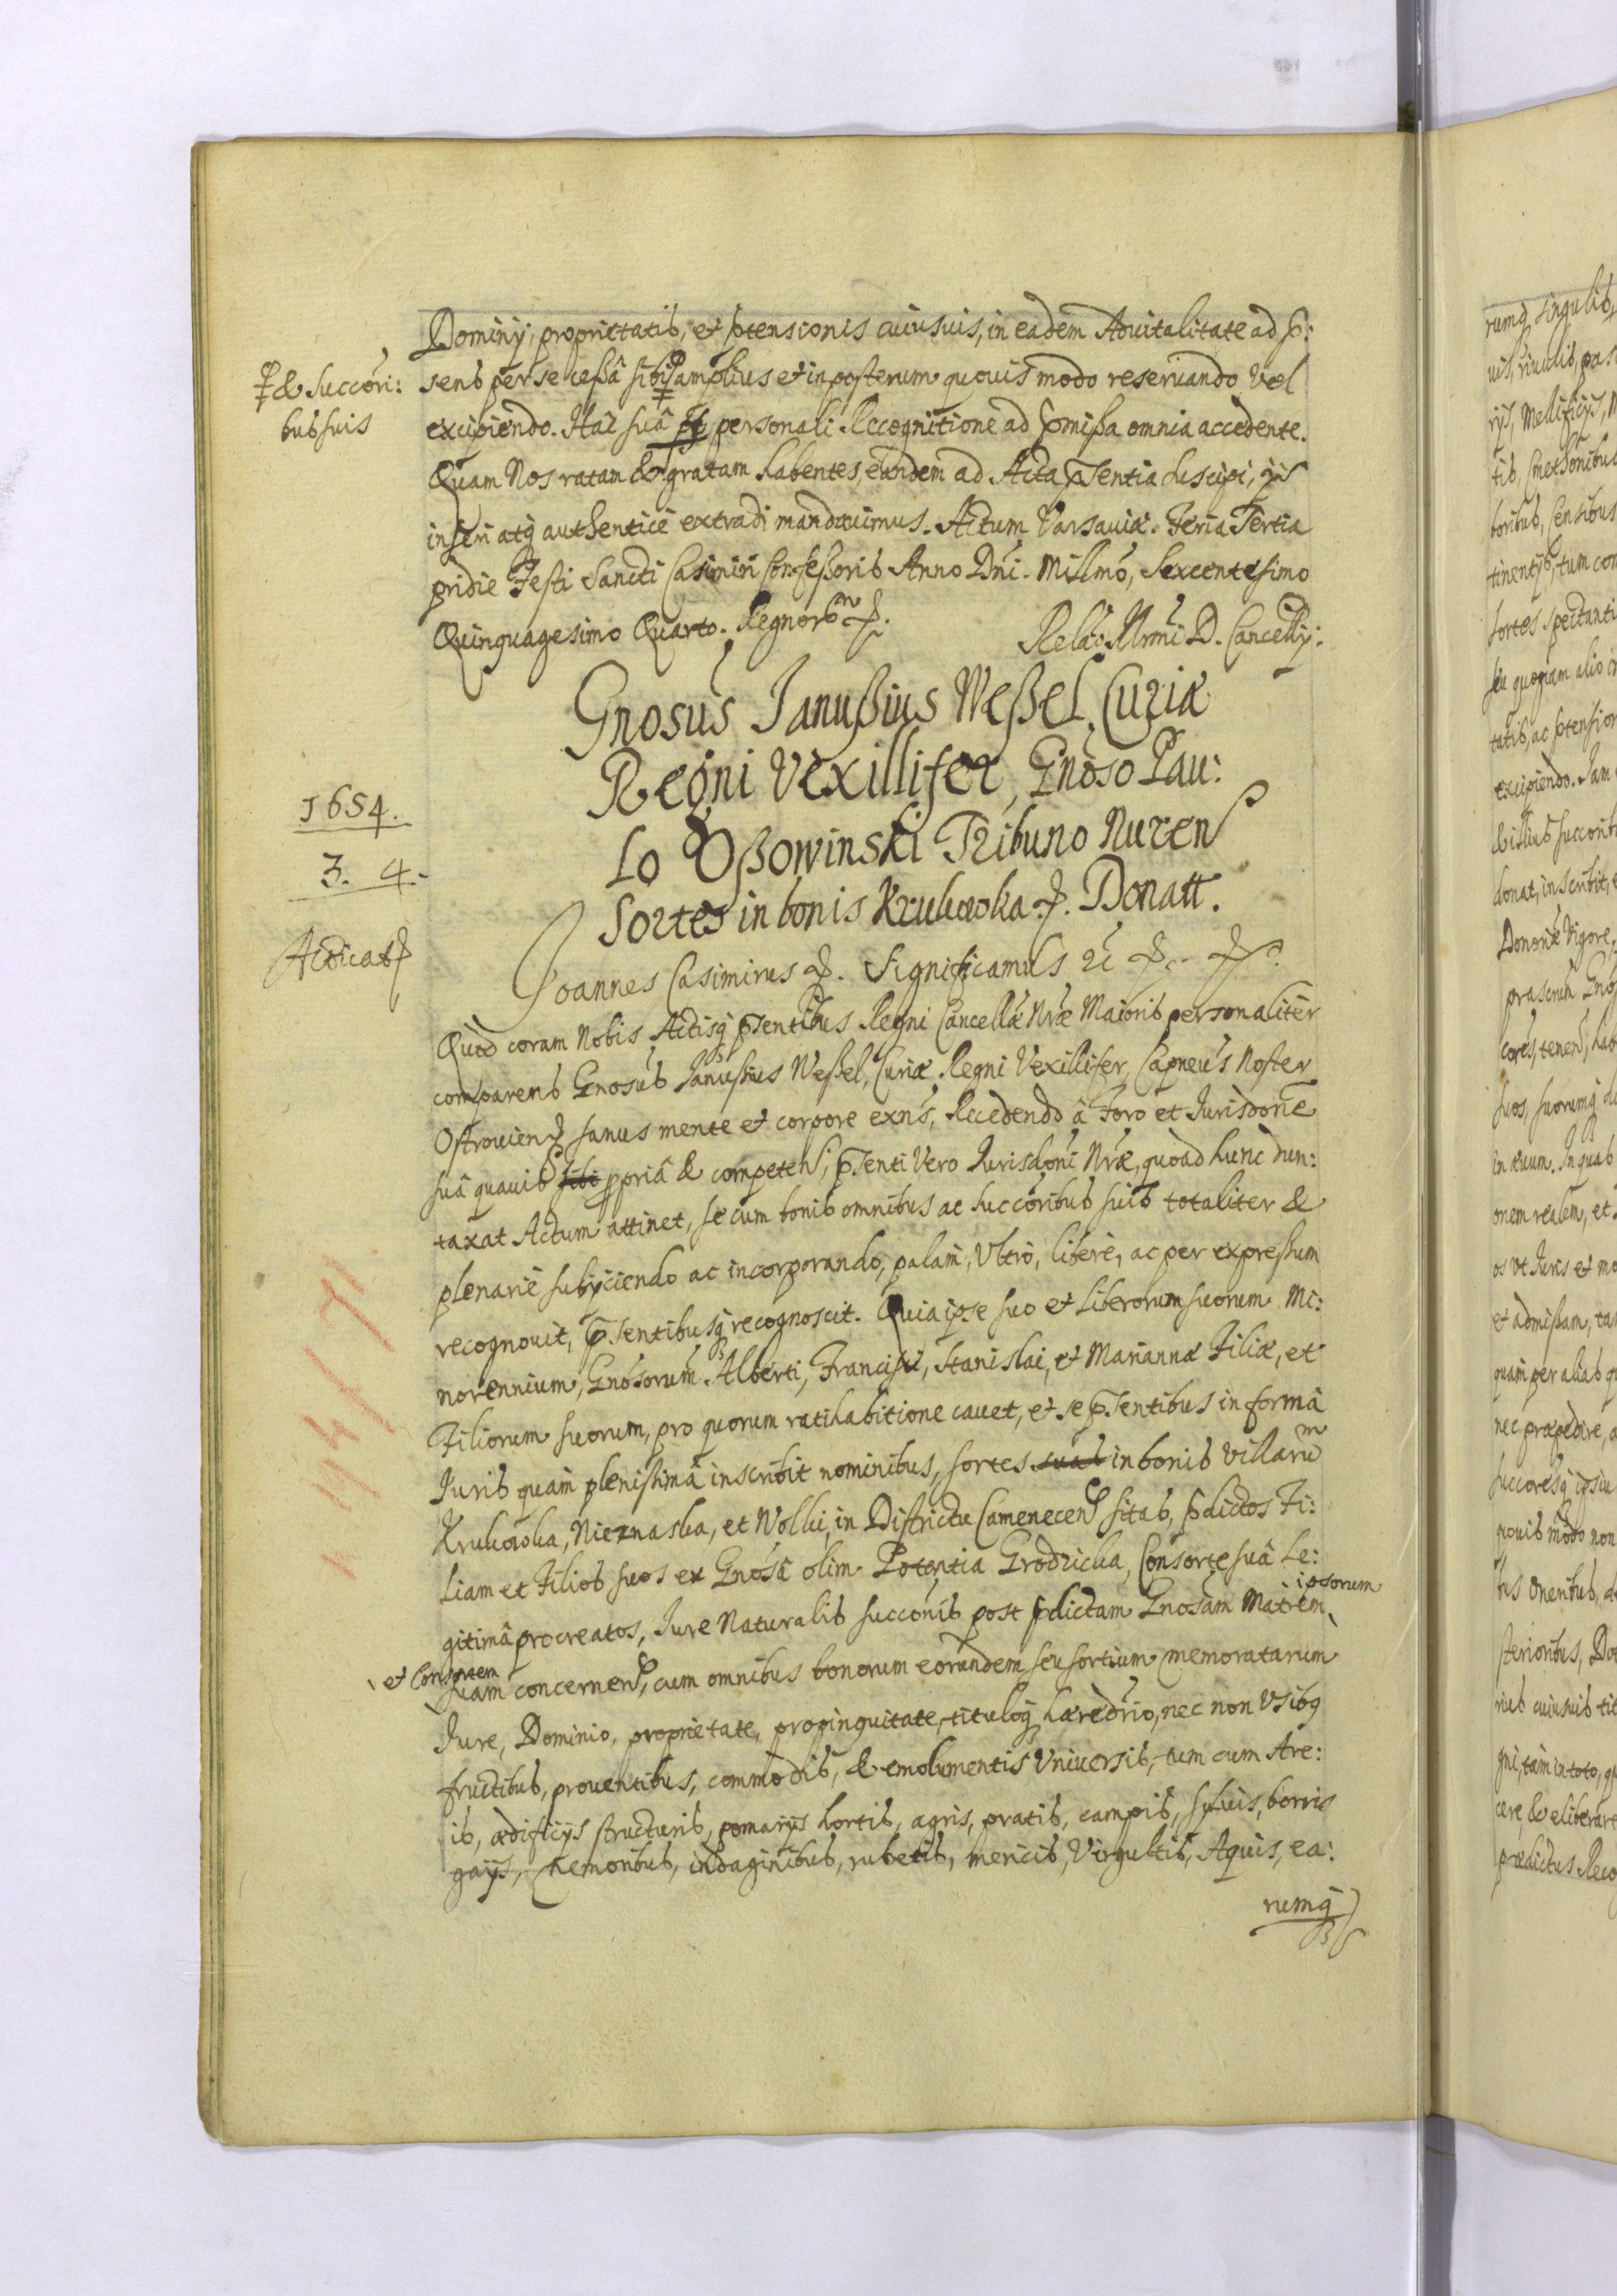 Dominij, proprietatis, et ptensionis cuiusuis, in eadem Aduitalitate ad p:
sens per se cessâ sibi amplius et in posterum quouis modo reseruando vel
‡ & Succóri:
bus suis
excipiendo. Hac suâ personali Recognitione ad pmissa omnia accedente.
Quam Nos ratam & gratam habentes, eandem ad Acta psentia suscipi, ijs
inseri atq authentice extradi mandauimus. Actum Varsauiæ. Feria Tertia
pridie Festi Sancti Casimiri Confessoris Anno Dni. Millmo, Sexcentesimo
Quinquagesimo Quarto. Regnorum
Relao Illrmi D. Cancellrij:
Gnosus Janussius Wessel Curiæ
Regni Vexillifer, Gnoso Pau:
lo Ossowinski Tribuno Nuren
Sortes in bonis Krukowka. Donatt.
1654.
3. 4.
Joannes Casimirus. Significamus
Quod coram Nobis Actisq psentibus Regni Cancellæ Nræ Maioris personaliter
comparens Gnosus Janussius Wessel, Curiæ Regni Vexillifer, Capneus Noster
Ostrouien, sanus mente et corpore exns, Recedendo â Foro et Jurisdone
suâ quauis sibi ppriâ & competen, psenti vero Jurisdoni Nræ, quoad hunc dun:
taxat Actum attinet, se cum bonis omnibus ac succoribus suis totaliter &
plenarie subijciendo ac incorporando, palam, Vltro, libere, ac per expressum
recognouit, psentibusq recognoscit. Quia ipse suo et liberorum suorum Mi:
norennium, Gnosorum Alberti, Francisci, Stanislai, et Mariannæ Filiæ, et
Filiorum suorum, pro quorum ratihabitione cauet, et se psentibus in formâ
Juris quam plenissimâ inscribit nominibus, sortes suas in bonis villarum
Krukowka, Nieznaska, et Wolki, in Districtu Camenecen sitas, pdictos Fi:
liam et Filios suos ex Gnosa olim Potentia Grodzicka, Consorte suâ Le:
gitimâ procreatos, Jure Naturalis succonis post pdictam Gnosam Matrem ipsorum
et Consortem
suam concernen, cum omnibus bonorum eorundem seu sortium memoratarum
Jure, Dominio, proprietate, propinquitate, tituloq hæredrio, nec non Vsibq
fructibus, prouentibus, commodis, & emolumentis Vniuersis, tum cum Are:
is, ædificijs structuris, pomarijs hortis, agris, pratis, campis, syluis, borris
gaijs, nemoribus, indaginibus, rubetis, mericis, Virgultis, Aquis, ea:
rumq